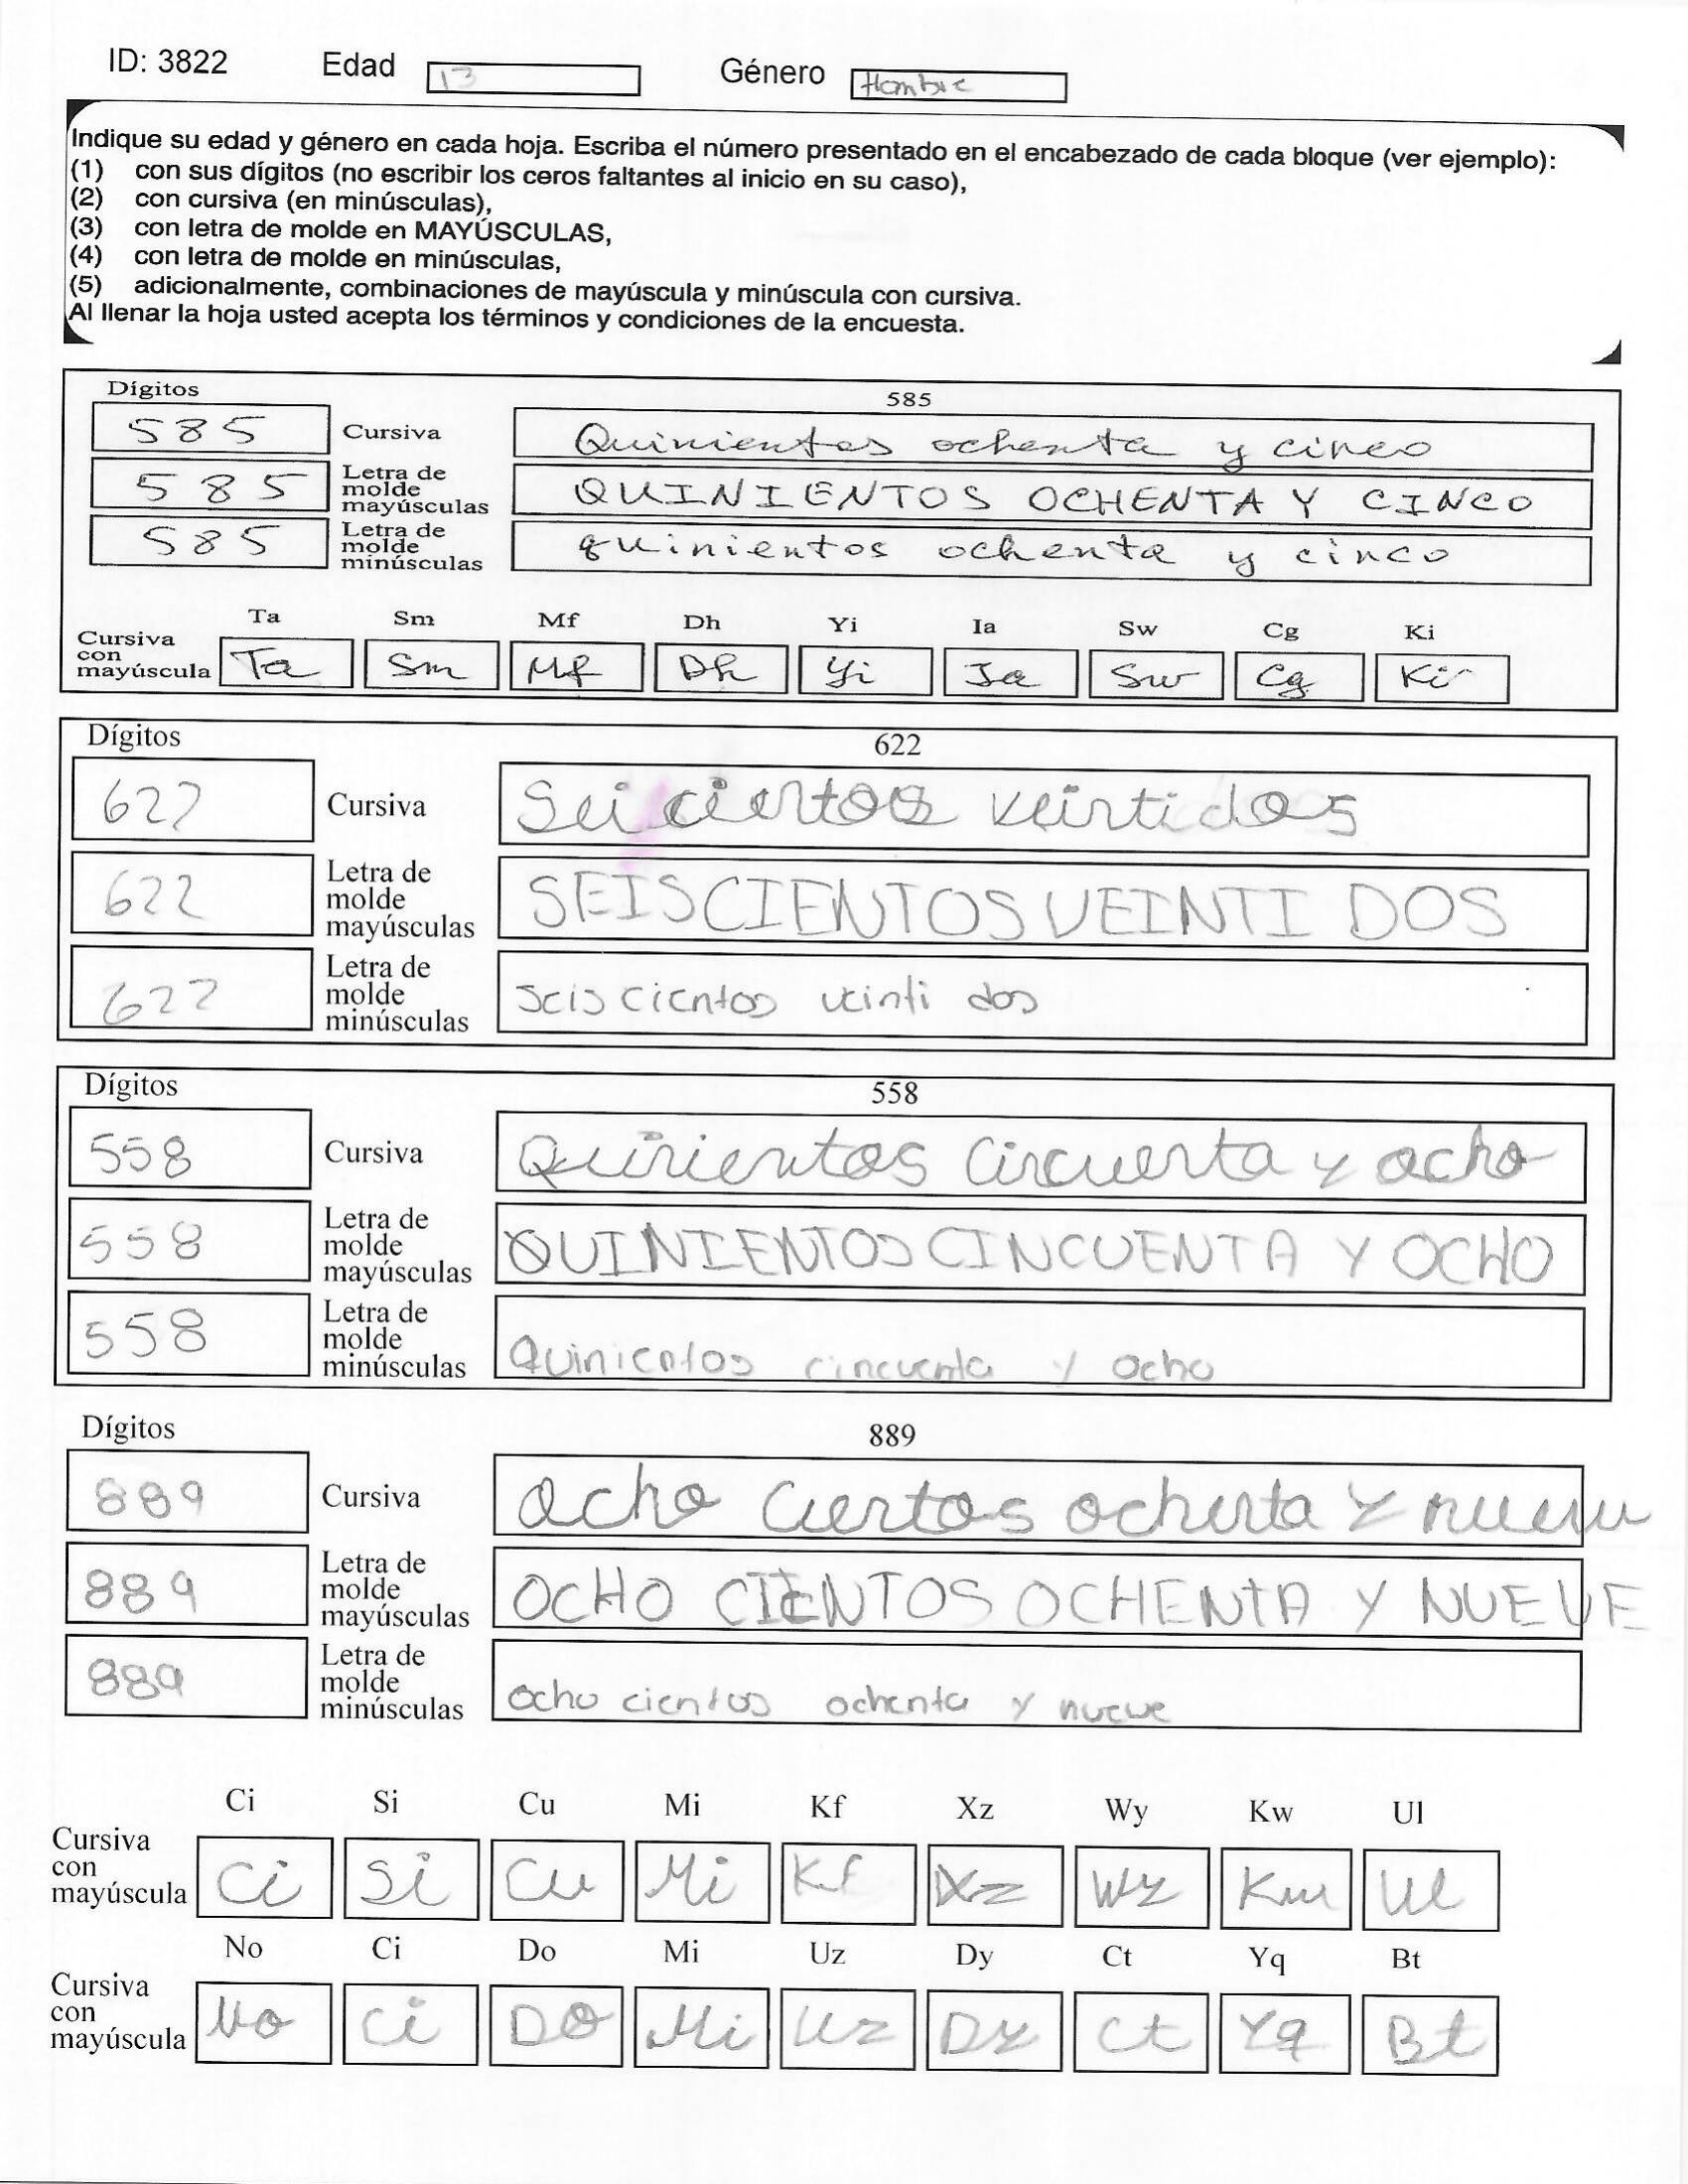 ID: 3822 Edad 13 Género Hombre
Indique su edad y género en cada hoja. Escriba el número presentado en el encabezado de cada bloque (ver ejemplo):
(1) con sus dígitos (no escribir los ceros faltantes al inicio en su caso),
(2) con cursiva (en minúsculas),
(3) con letra de molde en MAYÚSCULAS,
(4) con letra de molde en minúsculas,
(5) adicionalmente, combinaciones de mayúscula y minúscula con cursiva.
Al llenar la hoja usted acepta los términos y condiciones de la encuesta.
Dígitos 585
585 Cursiva Quinientos ochenta y cinco
585 Letra de molde mayúsculas QUINIENTOS OCHENTA Y CINCO
585 Letra de molde minúsculas quinientos ochenta y cinco
Ta Sm Mf Dh Yi Ia Sw Cg Ki
Cursiva con mayúscula Ta Sm Mf Dh Yi Ia Sw Cg Ki
Dígitos 622
622 Cursiva Seicientos veintidos
622 Letra de molde mayúsculas SEISCIENTOS VEINTI DOS
622 Letra de molde minúsculas seis cientos veinti dos
Dígitos 558
558 Cursiva Quinientos cincuenta y ocho
558 Letra de molde mayúsculas QUINIENTOS CINCUENTA Y OCHO
558 Letra de molde minúsculas Quinientos cincuenta y ocho
Dígitos 889
889 Cursiva ocho cientos ochenta y nueve
889 Letra de molde mayúsculas OCHO CIENTOS OCHENTA Y NUEVE
889 Letra de molde minúsculas ocho cientos ochenta y nueve
Ci Si Cu Mi Kf Xz Wy Kw Ul
Cursiva con mayúscula Ci Si Cu Mi Kf Xz Wy Kw Ul
No Ci Do Mi Uz Dy Ct Yq Bt
Cursiva con mayúscula No Ci Do Mi Uz Dy Ct Yq Bt